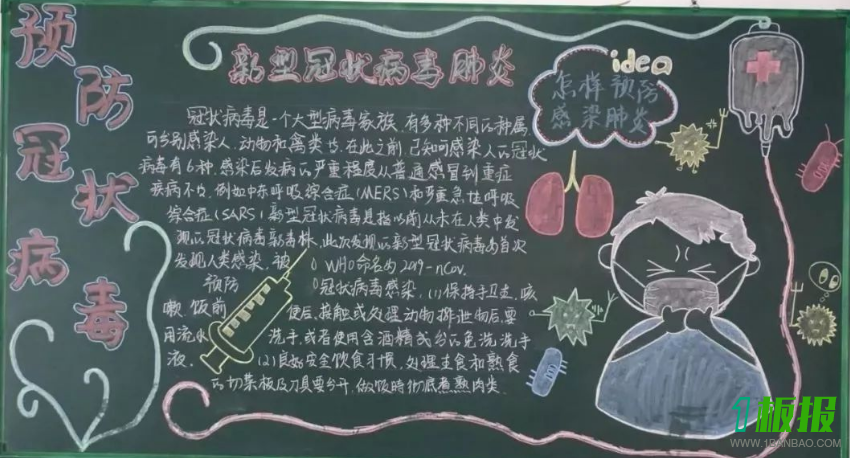 预防冠状病毒
新型冠状病毒肺炎
idea
怎样预防
感染肺炎
冠状病毒是一个大型病毒家族,有多种不同的种属,
可分别感染人,动物和禽类等,在此之前,已知可感染人的冠状
病毒有6种,感染后发病的严重程度从普通感冒到重症
疾病不等,例如中东呼吸综合症(MERS)和严重急性呼吸
综合症(SARS)新型冠状病毒是指以前从未在人类中发
现的冠状病毒新毒株,此次发现的新型冠状病毒为首次
发现人类感染,被 WHO命名为2019-nCoV.
预防 冠状病毒感染,(1)保持手卫生,咳
嗽,饭前 便后,接触或处理动物排泄物后,要
用流水 洗手,或者使用含酒精成分的免洗洗手
液. (2)良好安全饮食习惯,处理生食和熟食
的切菜板及刀具要分开,做饭时彻底煮熟肉类.
1板报
WWW.1BANBAO.COM